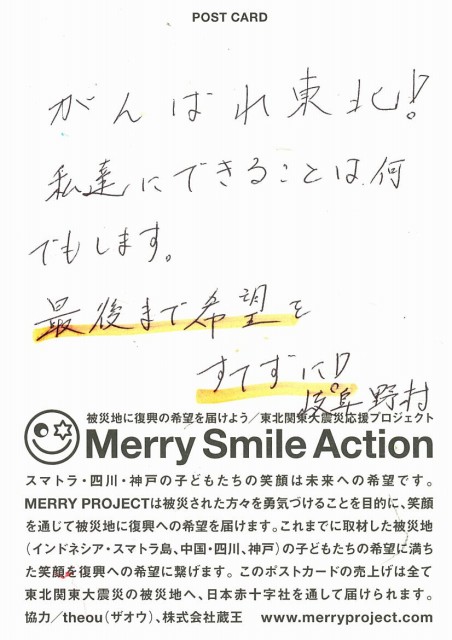 POST CARD
がんばれ東北!
私達にできることは何
でもします。
最後まで希望を
すてずに!
岐阜 野村
被災地に復興の希望を届けよう/東北関東大震災応援プロジェクト
Merry Smile Action
スマトラ・四川・神戸の子どもたちの笑顔は未来への希望です。
MERRY PROJECTは被災された方々を勇気づけることを目的に、笑顔
を通じて被災地に復興への希望を届けます。これまでに取材した被災地
(インドネシア・スマトラ島、中国・四川、神戸)の子どもたちの希望に満ち
た笑顔を復興への希望に繋げます。このポストカードの売上げは全て
東北関東大震災の被災地へ、日本赤十字社を通して届けられます。
協力/theou(ザオウ)、株式会社蔵王 www.merryproject.com